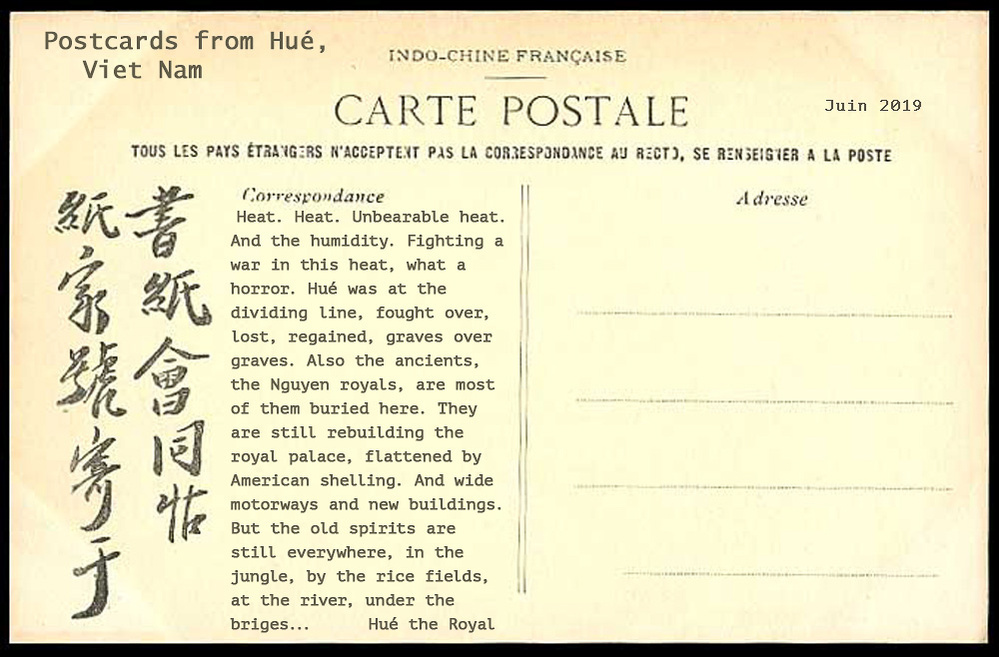 Postcards from Hué,
Viet Nam
INDO-CHINE FRANÇAISE
CARTE POSTALE
Juin 2019
TOUS LES PAYS ÉTRANGERS N'ACCEPTENT PAS LA CORRESPONDANCE AU RECTO, SE RENSEIGNER A LA POSTE
書紙會同帖
紙家號寄于
Correspondance
Heat. Heat. Unbearable heat.
And the humidity. Fighting a
war in this heat, what a
horror. Hué was at the
dividing line, fought over,
lost, regained, graves over
graves. Also the ancients,
the Nguyen royals, are most
of them buried here. They
are still rebuilding the
royal palace, flattened by
American shelling. And wide
motorways and new buildings.
But the old spirits are
still everywhere, in the
jungle, by the rice fields,
at the river, under the
briges... Hué the Royal
Adresse